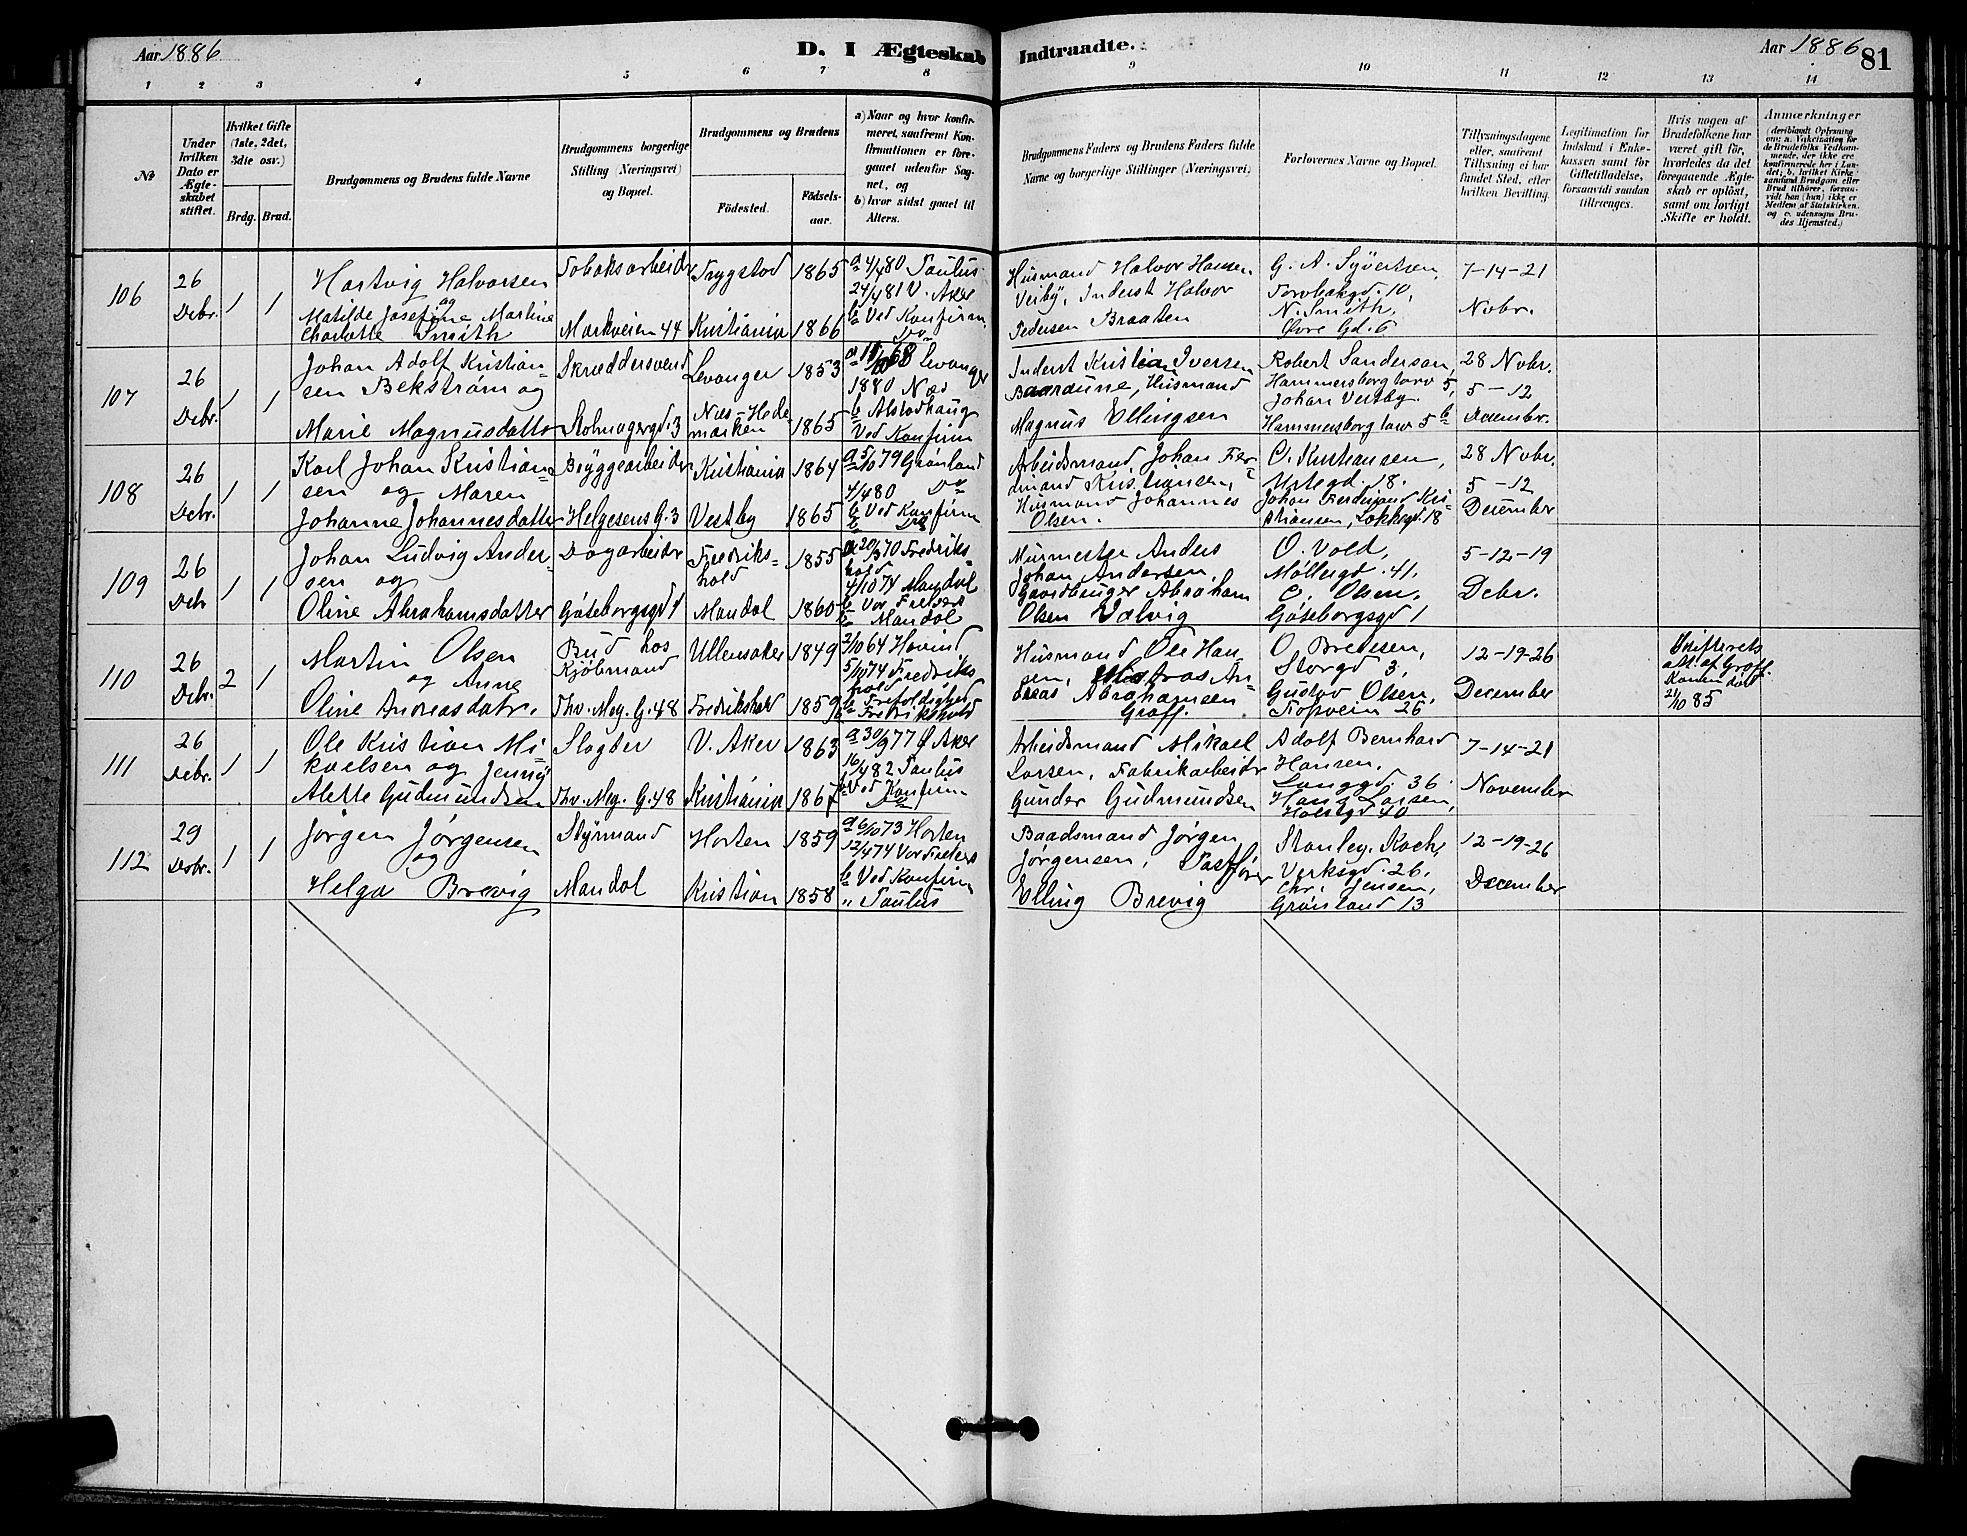 Aar 1886
D. I Ægteskab Indtraadte.
Aar 1886 81
1 2 3 4 5 6 7 8 9 10 11 12 13 14
No
Under hvilken Dato er Ægteskabet stiftet.
Hvilket Gifte (1ste, 2det, 3die osv.)
Brdg. Brud.
Brudgommens og Brudens fulde Navne
Brudgommens borgerlige Stilling (Næringsvei) og Bopæl.
Brudgommens og Brudens
Fødested. Fødselsaar.
a) Naar og hvor konfirmeret, saafremt Konfirmationen er foregaaet udenfor Sognet, og
b) hvor sidst gaaet til Alters.
Brudgommens Faders og Brudens Faders fulde Navne og borgerlige Stillinger (Næringsvei)
Forlovernes Navne og Bopæl.
Tillysningsdagene eller, saafremt Tillysning ei har fundet Sted, efter hvilken Bevilling.
Legitimation for Indskud i Enkekassen samt for Giftetilladelse, forsaavidt saadan tiltrænges.
Hvis nogen af Brudefolkene har været gift før, hvorledes da det foregaaende Ægteskab er opløst, samt om lovligt Skifte er holdt.
Anmærkninger
106
26 Debr. 1 1
Hartvig Halvorsen
og
Matilde Josefine Martine
Charlotte Smith
Tobaksarbeider
Markveien 44
Trygstad 1865
Kristiania 1866
a 4/480 Paulus
24/481 V. Aker
b Ved Konfirm.
Do
Husmand Halvor Hansen
Veiby, Inderst Halvor
Pedersen Braaten
G. A. Syvertsen,
Torvbakgd. 10,
N. Smith,
Øvre Gd. 6
7-14-21
Nobr.
107
26 Debr. 1 1
Johan Adolf Kristian-
sen Bekstrøm og
Marie Magnusdatter
Skræddersvend
Holmagergd. 3
Levanger 1853
Næs Hede-
marken 1865
68 Levanger
1880 Næs
b Alstadhaug
Ved Konfirm
Inderst Kristian Iversen
Husmand
Magnus Ellingsen
Robert Sanderson,
Hammersborg torv 5,
Johan Vestby
Hammersborg torv 5 b
28 Nobr.
5-12
Decembr.
108
26 Debr. 1 1
Karl Johan Kristian-
sen og Maren
Johanne Johannesdatter
Bryggearbeider
Helgesens G. 3
Kristiania 1864
Vestby 1865
a 5/1079 Grønland
4/480 Do
b Ved Konfirm
b Do
Arbeidsmand Johan Fer-
dinand Kristiansen,
Husmand Johannes
Olsen.
O. Kristiansen,
18.
Johan Ferdinand Kri-
stiansen, Lakkegd. 18
28 Nobr.
5-12
December
109
26 Debr 1 1
Johan Ludvig Ander-
sen og
Oline Abrahamsdatter
Dagarbeider
Gøteborgsgd 1
Fredriks-
hald 1855
Mandal 1860
a 20/370 Fredriks-
hald
4/1074 Mandal
b Vor Frelsers
b Mandal
Murmester Anders
Johan Andersen,
Gaardbruger Abraham
Olsen Valvig
O. Vold,
Møllergd. 41.
C. Olsen.
Gøteborgsgd 1
5-12-19
Debr.
110
26 Debr. 2 1
Martin Olsen
og Anne
Oline Andreasdatr.
Bud hos
Kjøbmand
Thv. Mey. G. 48
Ullensaker 1849
Fredrikshald 1859
2/1064 Hovind
5/1074 Fredriks-
hald
b Trefoldighed
b Fredrikshald
Husmand Ole Han-
sen, Matros An-
dreas Abrahamsen
Graff.
O. Bredesen,
Storgd 3,
Gustav Olsen,
Toftveien 26
12-19-26
December
Skifterets
att. af Graff.
Konen død
21/10 85
111
26 Debr. 1 1
Ole Kristian Mi-
kaelsen og Jenny
Alette Gudmundsen
Slagter
Thv. Mey. G. 48
V. Aker 1863
Kristiania 1867
a 30/977 Ø Aker
16/482 Paulus
b Ved Konfirm
b Do
Arbeidsmand Mikael
Larsen, Fabrikarbeider
Gunder Gudmundsen
Adolf Bernhard
Hansen,
Langgd 36
Hans Larsen,
Holstgd 40
7-14-21
November
112
29 Debr. 1 1
Jørgen Jørgensen
og
Helga Brevig
Styrmand
Mandal
Horten 1859
Kristian 1858
a 6/1073 Horten
12/474 Vor Frelsers
b Ved Konfirm
" Paulus
Baadsmand Jørgen
Jørgensen, Postfører
Elling Brevig
Stanley. Koch,
Verksgd. 26.
Chr. Jensen,
Grønland 13
12-19-26
December